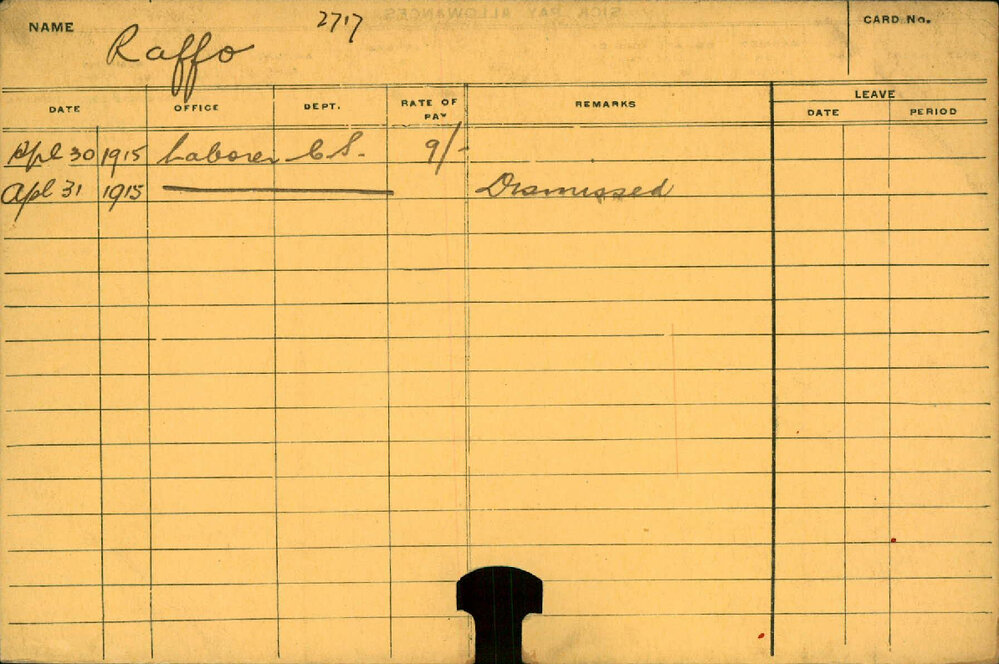 NAME Raffo 2717 CARD No.
DATE OFFICE DEPT. RATE OF PAY REMARKS LEAVE DATE PERIOD
Apl 30 1915 Laborer C.S. 9/-
Apl 31 1915 Dismissed